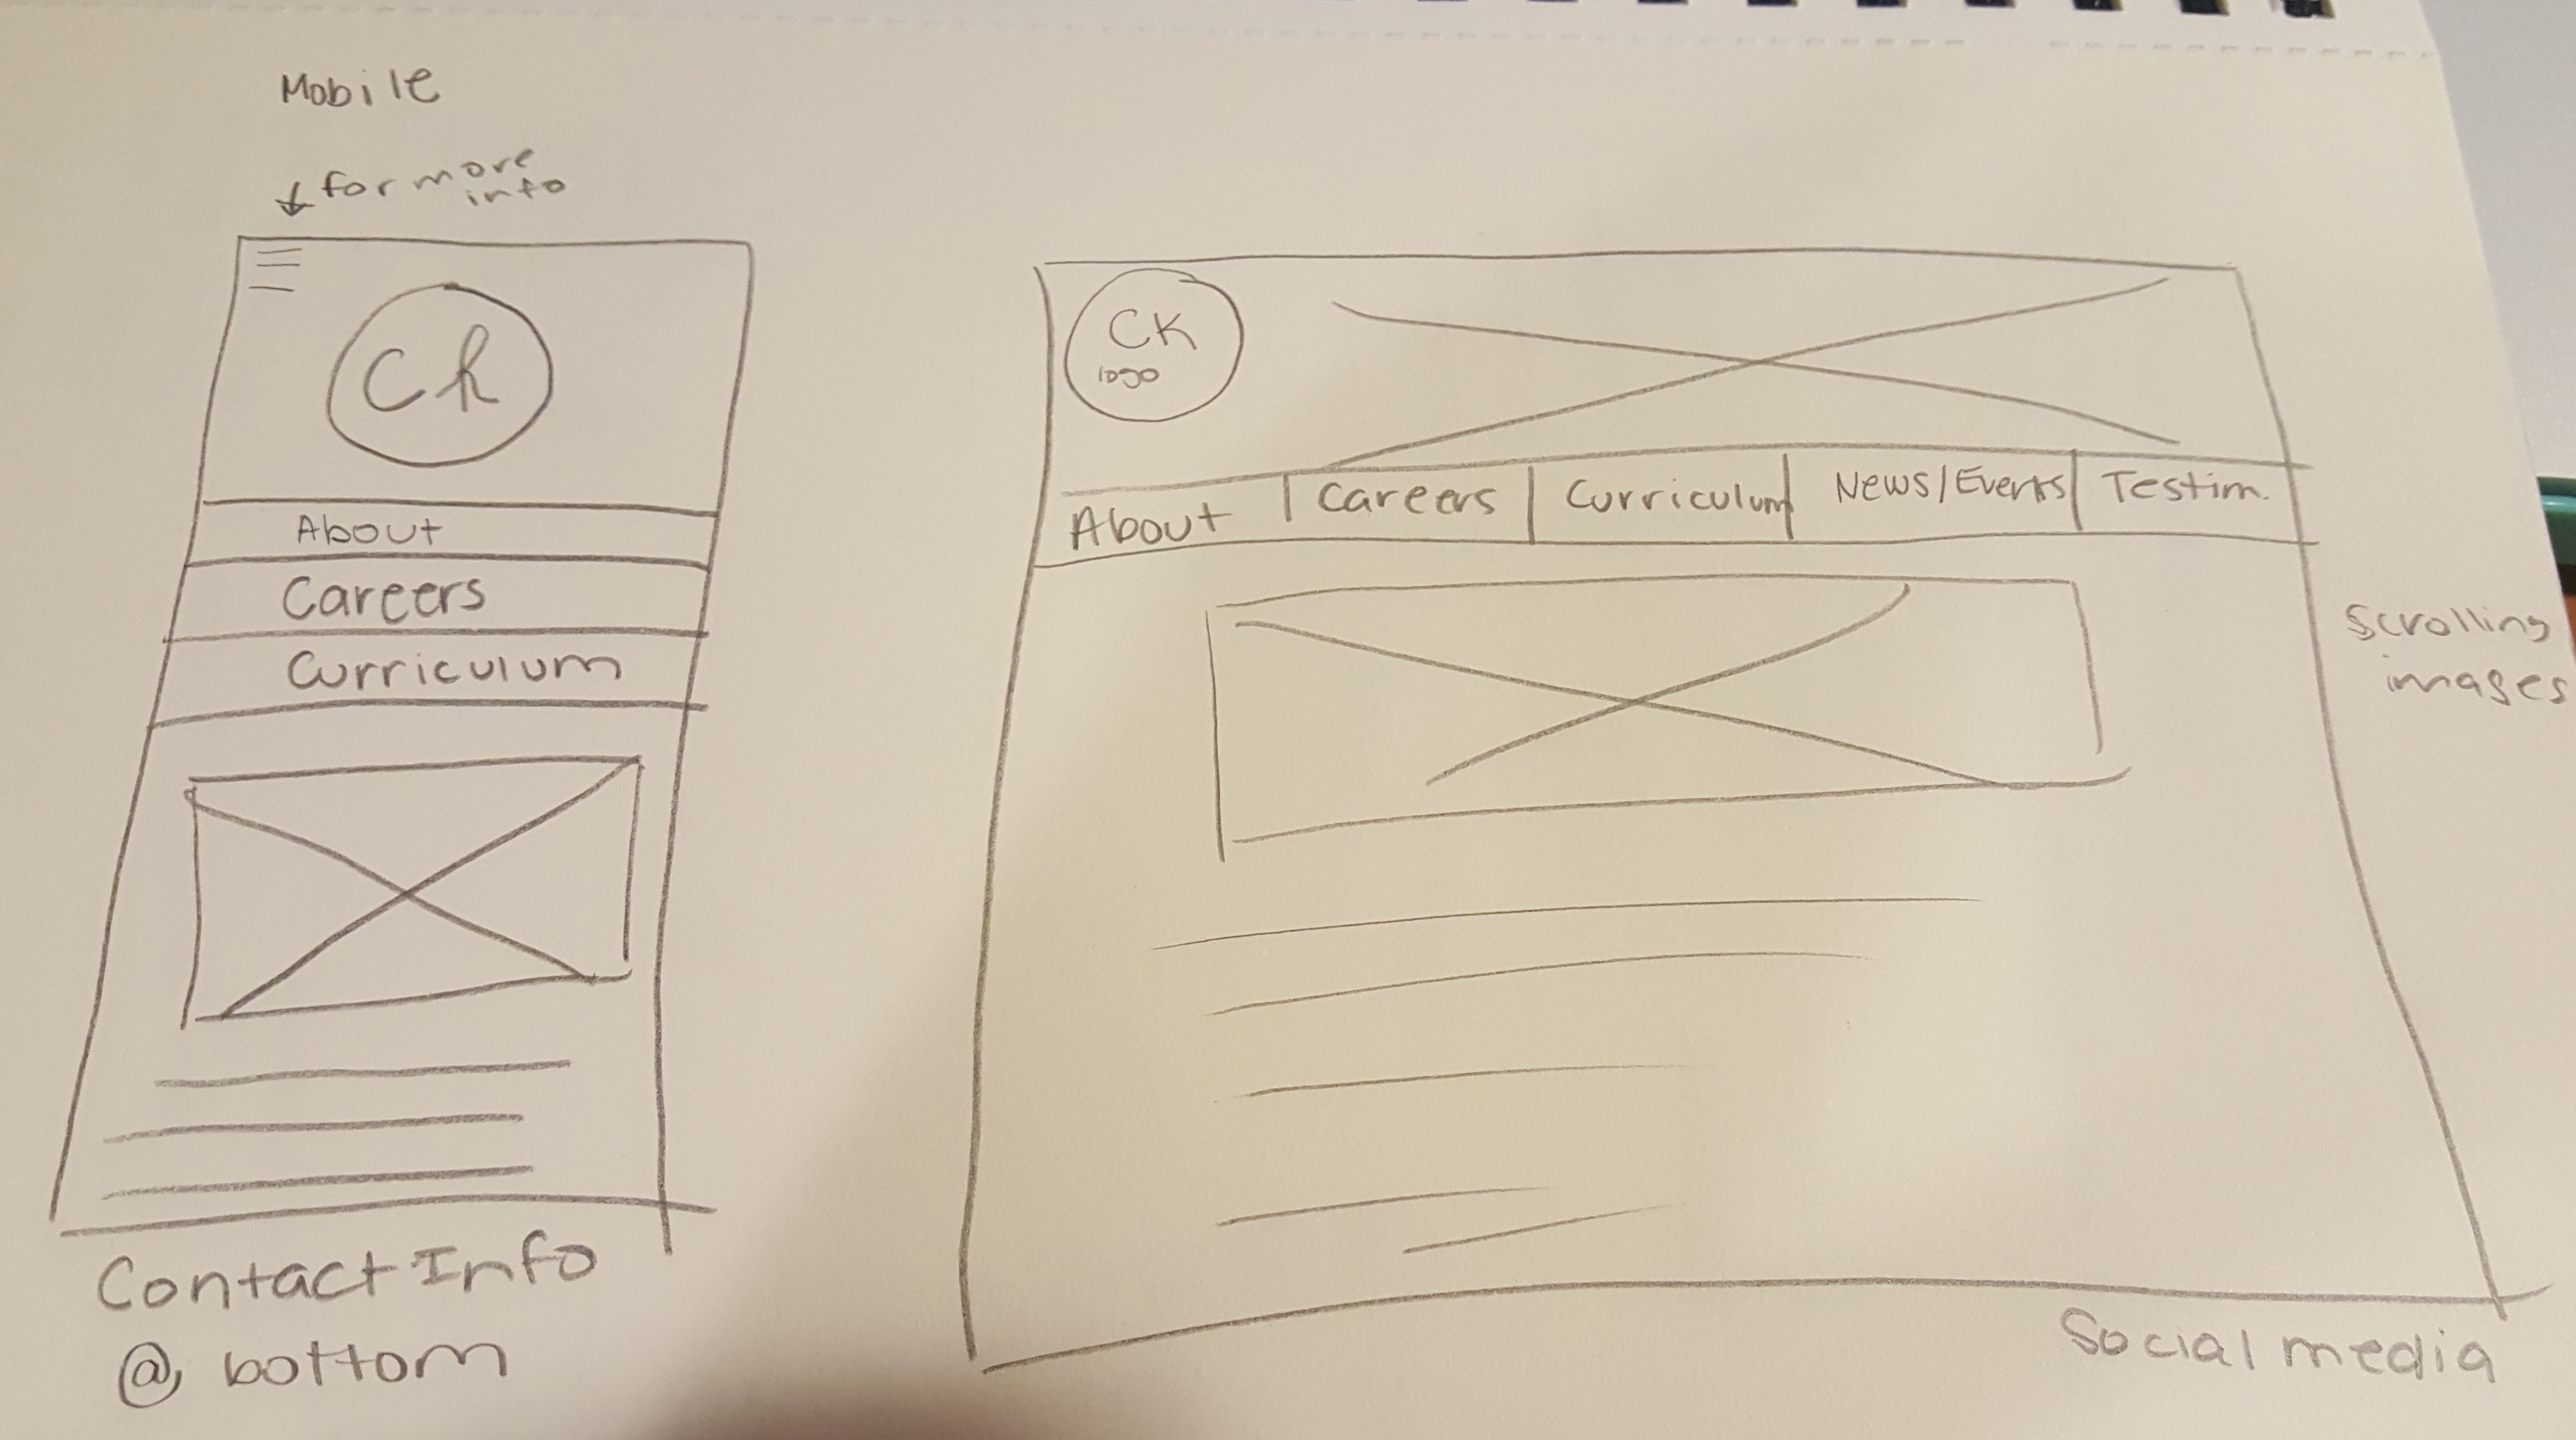 Mobile
for more
info
Ck
About
Careers
Curriculum
Contact Info
@ bottom
CK
logo
About
Careers
Curriculum
News/Events
Testim.
Scrolling
images
Social media